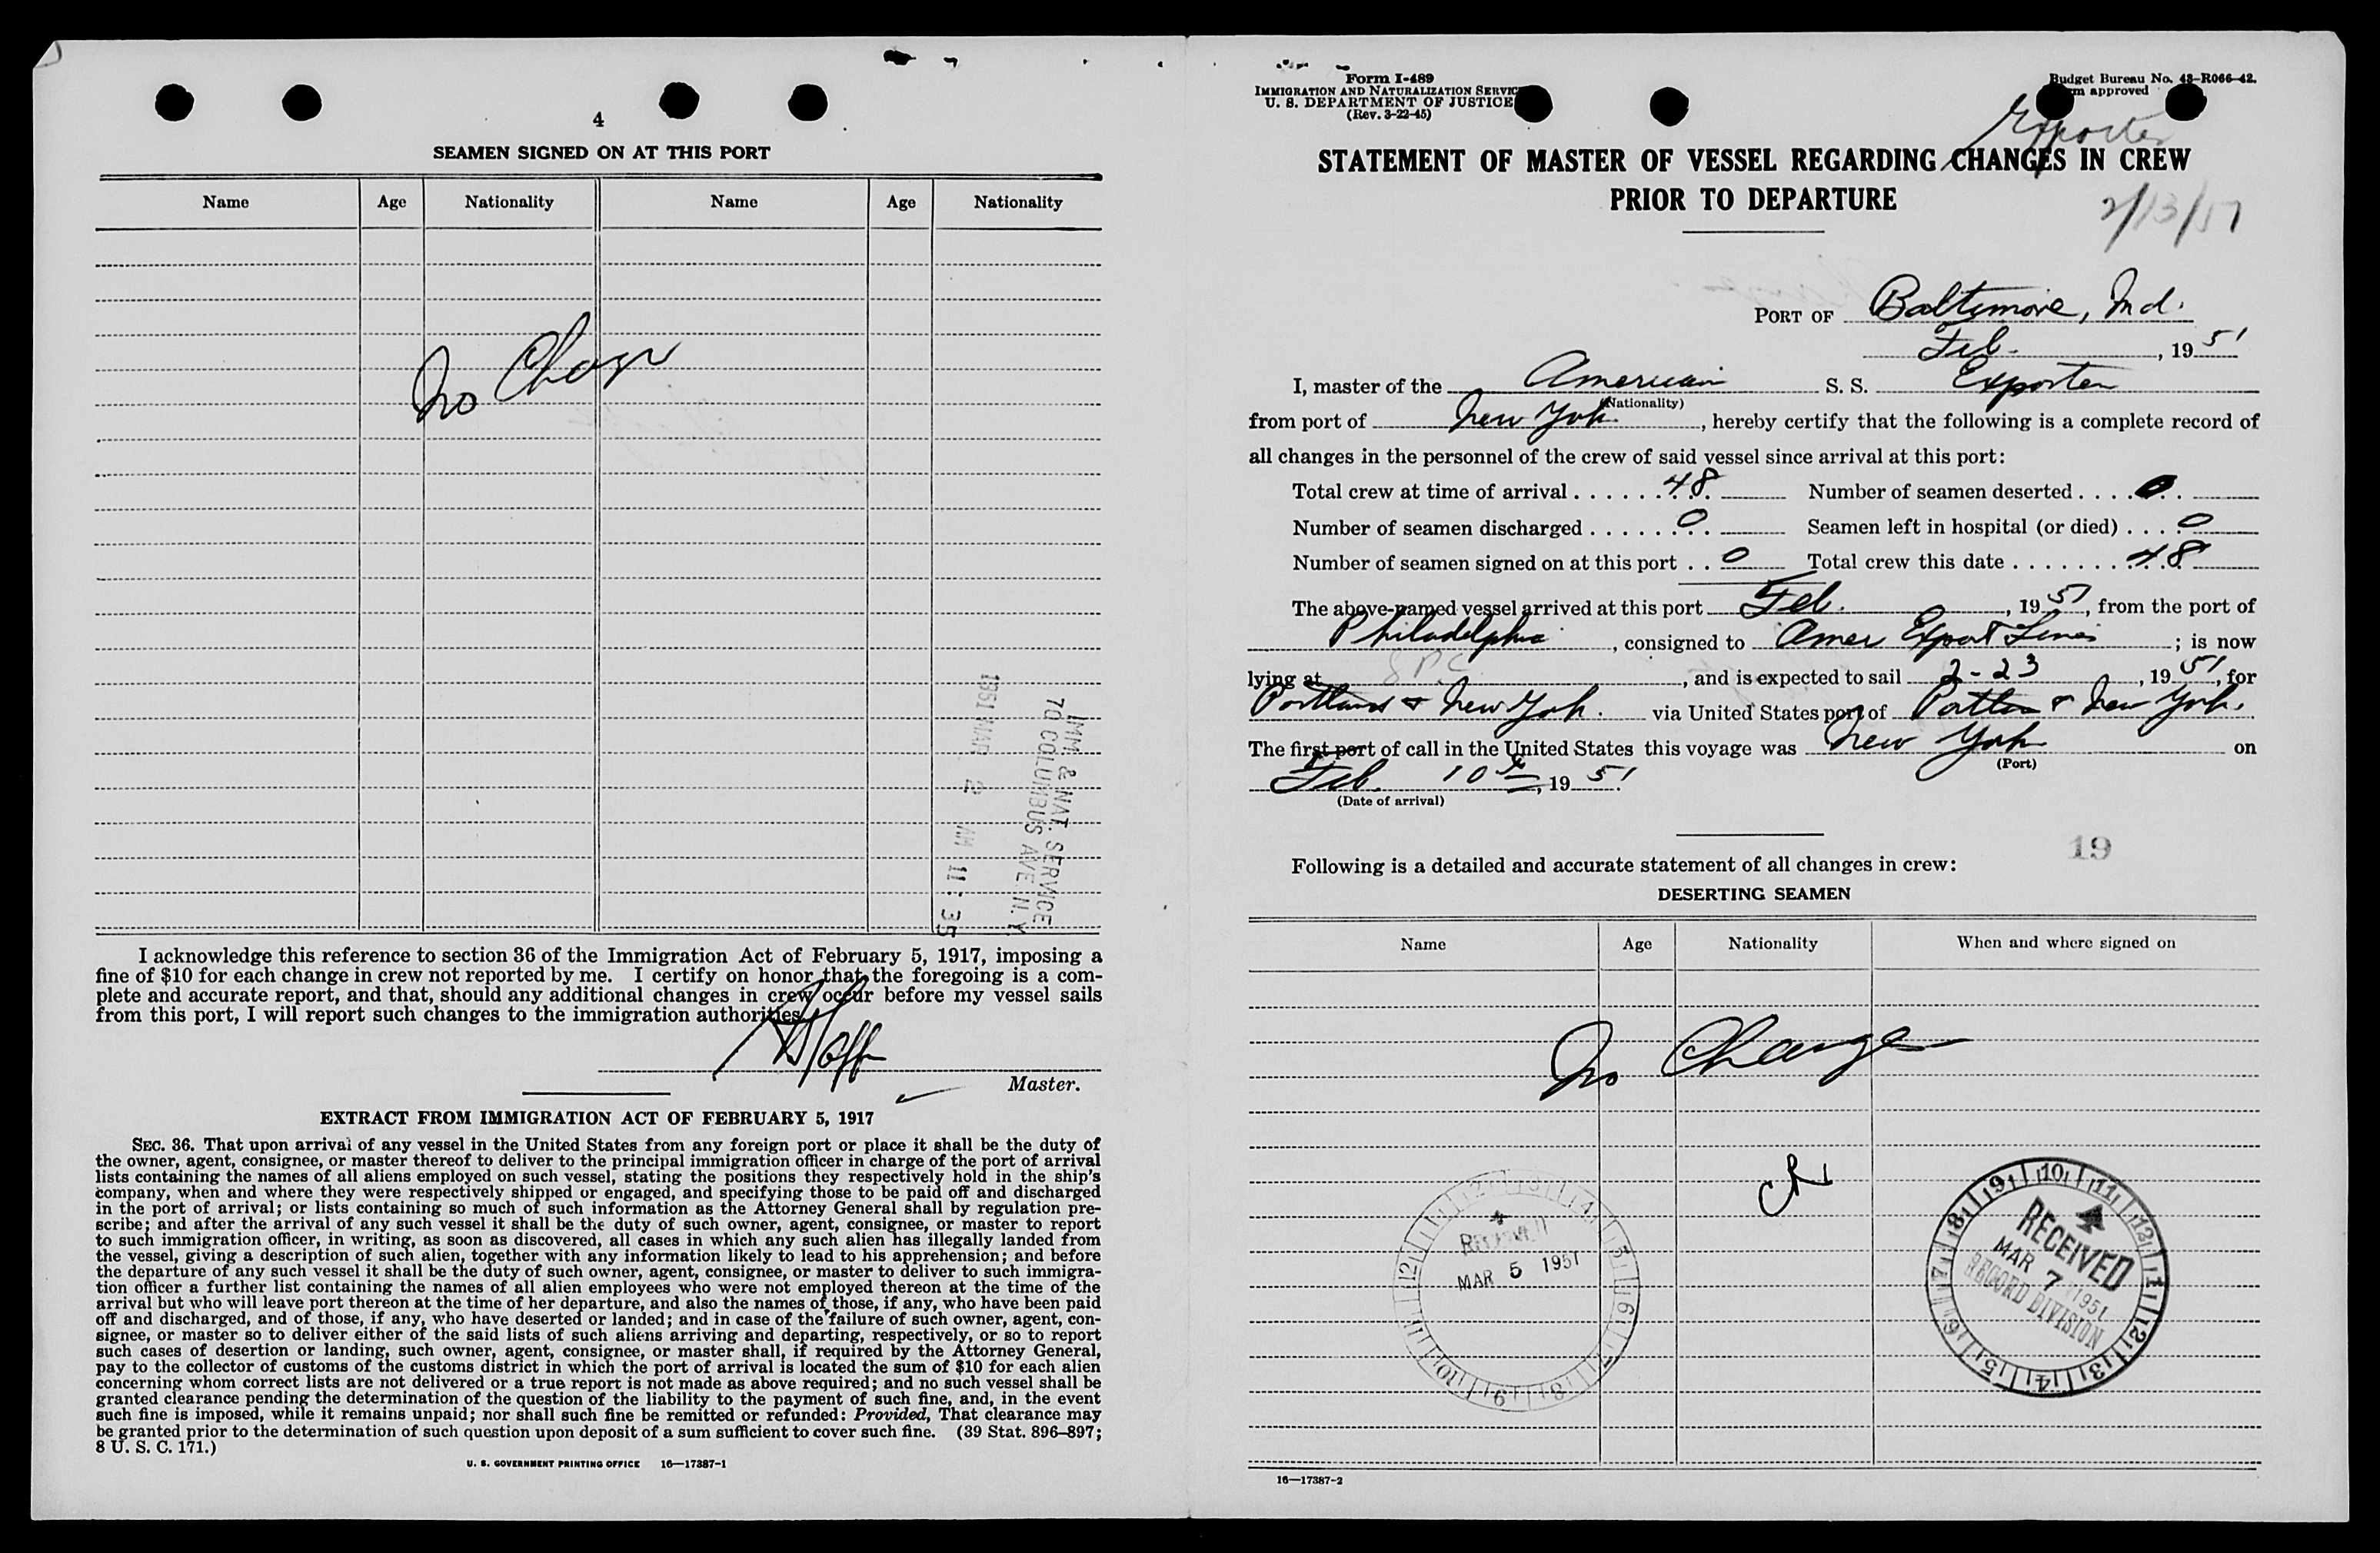 4
SEAMEN SIGNED ON AT THIS PORT
Name Age Nationality Name Age Nationality
No Change
IMM. & NAT. SERVICE
70 COLUMBUS AVE. N.Y.
1951 MAR 2 AM 11:35
I acknowledge this reference to section 36 of the Immigration Act of February 5, 1917, imposing a
fine of $10 for each change in crew not reported by me. I certify on honor that the foregoing is a com-
plete and accurate report, and that, should any additional changes in crew occur before my vessel sails
from this port, I will report such changes to the immigration authorities.
Master.
EXTRACT FROM IMMIGRATION ACT OF FEBRUARY 5, 1917
SEC. 36. That upon arrival of any vessel in the United States from any foreign port or place it shall be the duty of
the owner, agent, consignee, or master thereof to deliver to the principal immigration officer in charge of the port of arrival
lists containing the names of all aliens employed on such vessel, stating the positions they respectively hold in the ship's
company, when and where they were respectively shipped or engaged, and specifying those to be paid off and discharged
in the port of arrival; or lists containing so much of such information as the Attorney General shall by regulation pre-
scribe; and after the arrival of any such vessel it shall be the duty of such owner, agent, consignee, or master to report
to such immigration officer, in writing, as soon as discovered, all cases in which any such alien has illegally landed from
the vessel, giving a description of such alien, together with any information likely to lead to his apprehension; and before
the departure of any such vessel it shall be the duty of such owner, agent, consignee, or master to deliver to such immigra-
tion officer a further list containing the names of all alien employees who were not employed thereon at the time of the
arrival but who will leave port thereon at the time of her departure, and also the names of those, if any, who have been paid
off and discharged, and of those, if any, who have deserted or landed; and in case of the failure of such owner, agent, con-
signee, or master so to deliver either of the said lists of such aliens arriving and departing, respectively, or so to report
such cases of desertion or landing, such owner, agent, consignee, or master shall, if required by the Attorney General,
pay to the collector of customs of the customs district in which the port of arrival is located the sum of $10 for each alien
concerning whom correct lists are not delivered or a true report is not made as above required; and no such vessel shall be
granted clearance pending the determination of the question of the liability to the payment of such fine, and, in the event
such fine is imposed, while it remains unpaid; nor shall such fine be remitted or refunded: Provided, That clearance may
be granted prior to the determination of such question upon deposit of a sum sufficient to cover such fine. (39 Stat. 896–897;
8 U. S. C. 171.)
U. S. GOVERNMENT PRINTING OFFICE 16—17387-1
Form I-489
IMMIGRATION AND NATURALIZATION SERVICE
U. S. DEPARTMENT OF JUSTICE
(Rev. 3-22-45)
Budget Bureau No. 43-R066-42.
approved
Exporter
STATEMENT OF MASTER OF VESSEL REGARDING CHANGES IN CREW
PRIOR TO DEPARTURE
2/13/51
PORT OF Baltimore, Md.
Feb. , 1951
I, master of the American S. S. Exporter
(Nationality)
from port of New York , hereby certify that the following is a complete record of
all changes in the personnel of the crew of said vessel since arrival at this port:
Total crew at time of arrival . . . . . . 48 Number of seamen deserted . . . . 0
Number of seamen discharged . . . . . . 0 Seamen left in hospital (or died) . . . . 0
Number of seamen signed on at this port . . 0 Total crew this date . . . . . . . . 48
The above-named vessel arrived at this port Feb. , 1951, from the port of
Philadelphia , consigned to Amer Export Lines ; is now
lying at , and is expected to sail 2-23 , 1951, for
Portland & New York. via United States port of & New York.
The first port of call in the United States this voyage was New York on
(Port)
Feb. 10th, 1951
(Date of arrival)
19
Following is a detailed and accurate statement of all changes in crew:
DESERTING SEAMEN
Name Age Nationality When and where signed on
No Change
RECEIVED
MAR 5 1951
RECEIVED
MAR 7 1951
RECORD DIVISION
16—17387-2